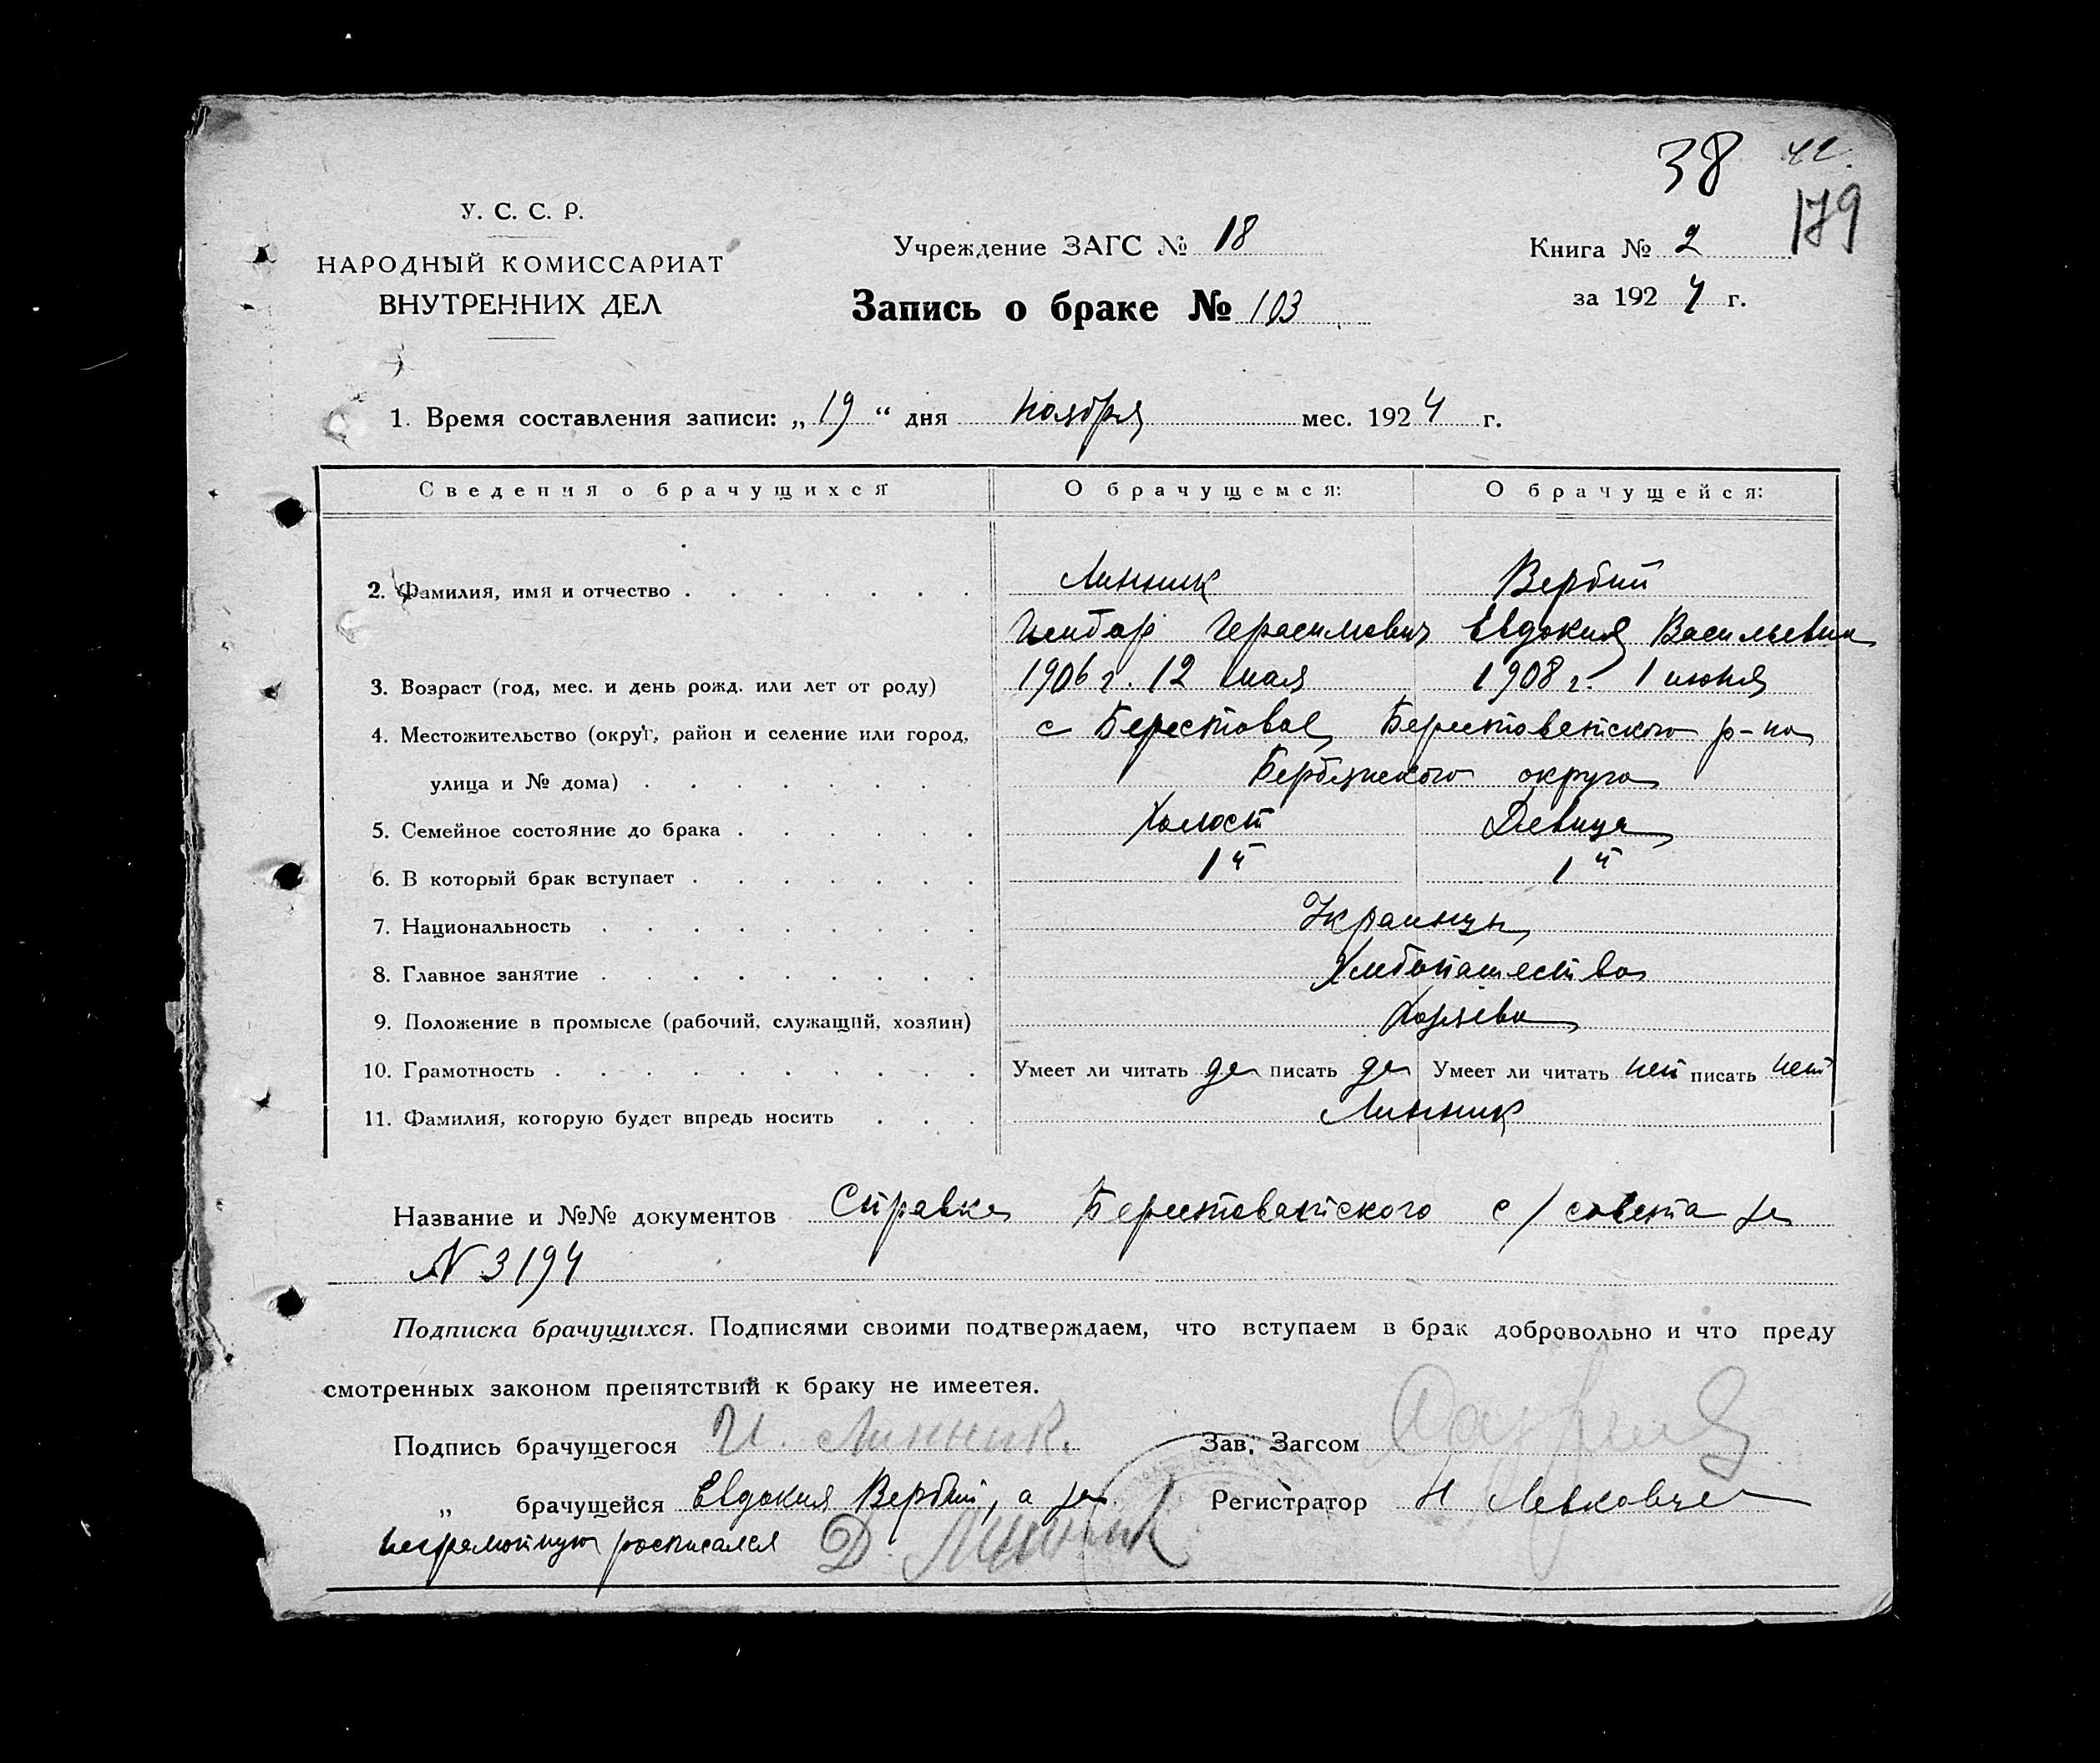 38
179
У. С. С. Р.
НАРОДНЫЙ КОМИССАРИАТ
ВНУТРЕННИХ ДЕЛ
Учреждение ЗАГС № 18
Запись о браке № 103
Книга № 2
за 1924 г.
1. Время составления записи: „19“ дня ноября мес. 1924 г.
Сведения о брачущихся О брачущемся: О брачущейся:
2. Фамилия, имя и отчество Линник Вербий
Герасимович Евдокия Васильевна
3. Возраст (год, мес. и день рожд. или лет от роду) 1906 г. 12 мая 1908 г. 1 июня
4. Местожительство (округ, район и селение или город, с Берестовое, Берестовецкого р-на
улица и № дома) Бердянского округа
5. Семейное состояние до брака Холост Девица
6. В который брак вступает 1й 1й
7. Национальность Украинцы
8. Главное занятие Хлебопашество
9. Положение в промысле (рабочий, служащий, хозяин) Хозяева
10. Грамотность Умеет ли читать да писать да Умеет ли читать нет писать нет
11. Фамилия, которую будет впредь носить Линник
Название и №№ документов Справка Берестоватского с/совета за
N 3194
Подписка брачущихся. Подписями своими подтверждаем, что вступаем в брак добровольно и что преду
смотренных законом препятствий к браку не имеетея.
Подпись брачущегося И. Линник. Зав. Загсом
„ брачущейся Евдокия Вербий, а за Регистратор Н Левковче
неграмотную росписался Д. Линник